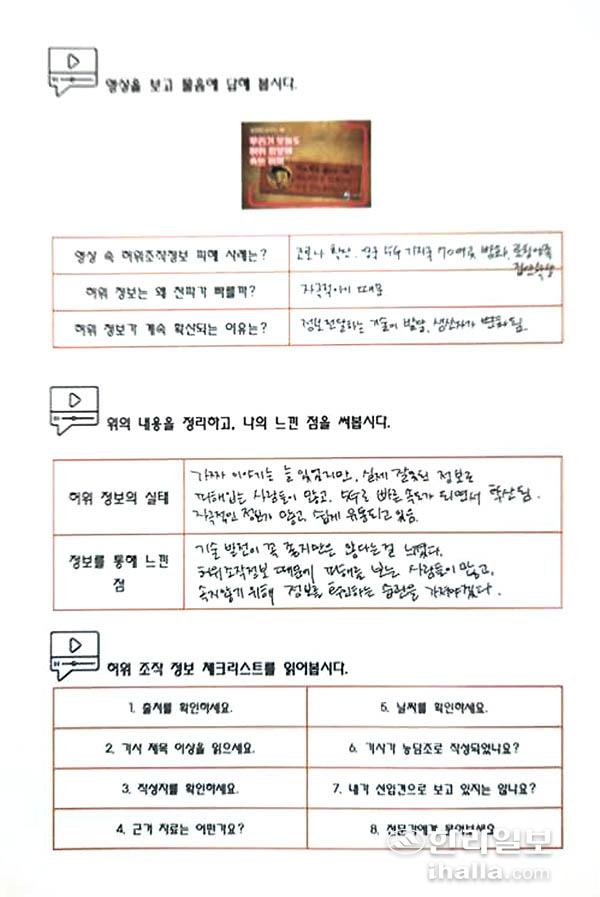 영상을 보고 물음에 답해 봅시다.
우리가 오늘도
허위 정보에
속는 이유
영상 속 허위조작정보 피해 사례는?
코로나 확산. 영국 5G 기지국 70여곳 방화, 포항여중
집단학생
허위 정보는 왜 전파가 빠를까?
자극적이기 때문
허위 정보가 계속 확산되는 이유는?
정보전달하는 기술이 발달, 생산자가 변화됨.
위의 내용을 정리하고, 나의 느낀 점을 써봅시다.
허위 정보의 실태
가짜 이야기는 늘 있었지만, 실제 잘못된 정보로
피해입는 사람들이 많고, 5G로 빠른 속도가 되면서 확산됨.
자극적인 정보가 많고, 쉽게 유통되고 있음.
정보를 통해 느낀
점
기술 발전이 꼭 좋지만은 않다는걸 느꼈다.
허위조작정보 때문에 피해를 보는 사람들이 많고,
속지않기 위해 정보를 확인하는 습관을 가져야겠다.
허위 조작 정보 체크리스트를 읽어봅시다.
1. 출처를 확인하세요.
5. 날짜를 확인하세요.
2. 기사 제목 이상을 읽으세요.
6. 기사가 농담조로 작성되었나요?
3. 작성자를 확인하세요.
7. 내가 선입견으로 보고 있지는 않나요?
4. 근거 자료는 어떤가요?
8. 전문가에게 물어보세요.
한라일보
ihalla.com